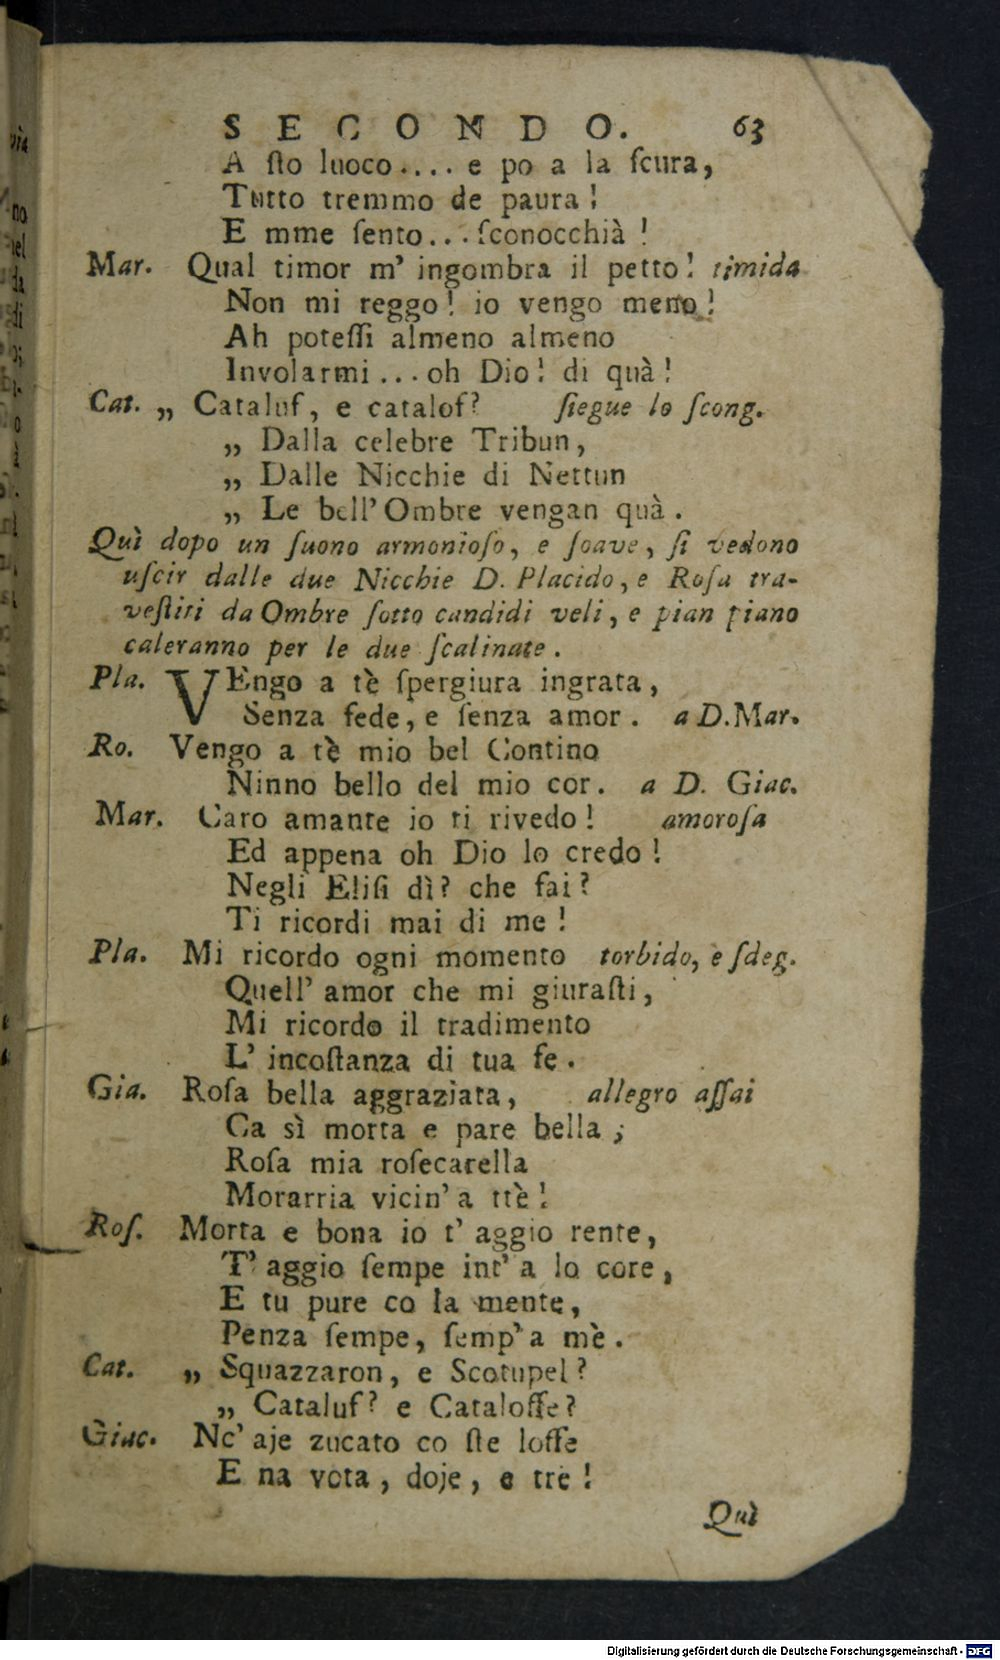 SECONDO. 63
A ſto luoco.... e po a la ſcura,
Tutto tremmo de paura!
E mme ſento...ſconocchià!
Mar. Qual timor m' ingombra il petto! timida
Non mi reggo! io vengo meno!
Ah poteſſi almeno almeno
Involarmi...oh Dio! di quà!
Cat. „ Cataluf, e catalof? ſiegue lo ſcong.
„ Dalla celebre Tribun,
„ Dalle Nicchie di Nettun
„ Le bell'Ombre vengan quà.
Quì dopo un ſuono armonioſo, e ſoave, ſi vedono
uſcir dalle due Nicchie D. Placido, e Roſa tra-
veſtiti da Ombre ſotto candidi veli, e pian piano
caleranno per le due ſcalinate.
Pla. VEngo a tè ſpergiura ingrata,
Senza fede, e ſenza amor. a D.Mar.
Ro. Vengo a tè mio bel Contino
Ninno bello del mio cor. a D. Giac.
Mar. Caro amante io ti rivedo! amoroſa
Ed appena oh Dio lo credo!
Negli Eliſi dì? che fai?
Ti ricordi mai di me!
Pla. Mi ricordo ogni momento torbido, e ſdeg.
Quell' amor che mi giuraſti,
Mi ricordo il tradimento
L' incoſtanza di tua fe.
Gia. Roſa bella aggraziata, allegro aſſai
Ca sì morta e pare bella;
Roſa mia roſecarella
Morarria vicin' a ttè!
Roſ. Morta e bona io t' aggio rente,
T' aggio ſempe int' a lo core,
E tu pure co la mente,
Penza ſempe, ſemp' a mè.
Cat. „ Squazzaron, e Scotupel?
„ Cataluf? e Cataloffe?
Giac. Nc' aje zucato co ſte loffe
E na vota, doje, e tre!
Quì
Digitalisierung gefördert durch die Deutsche Forschungsgemeinschaft - DFG